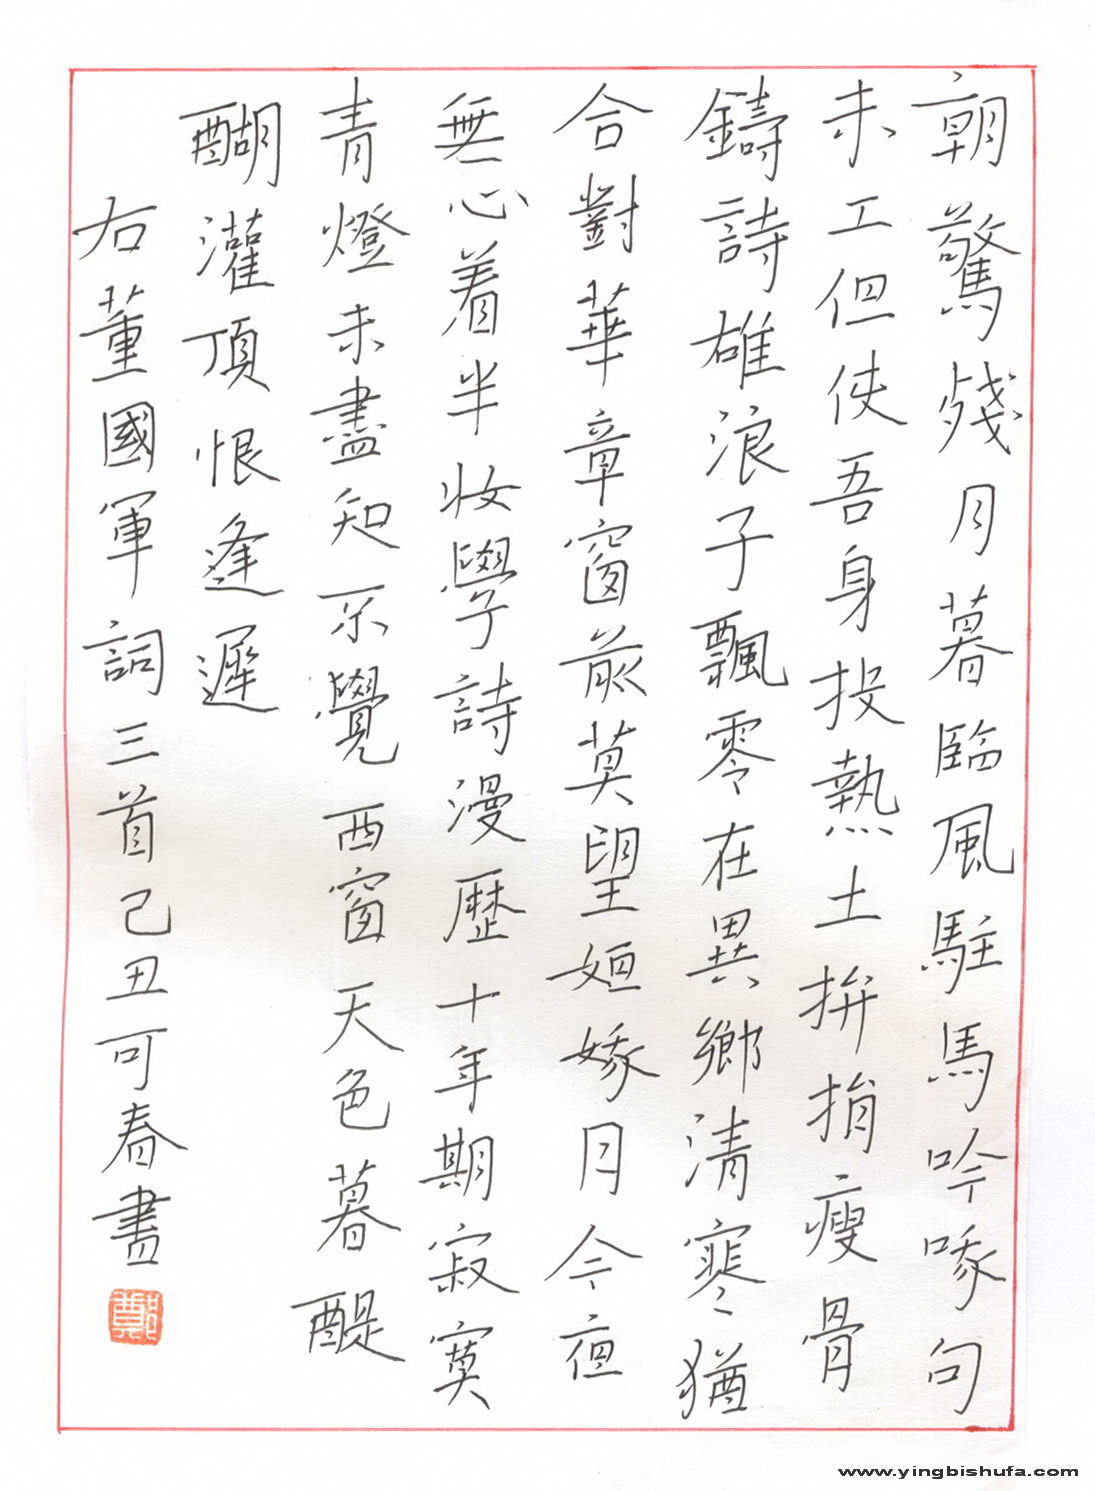 朝驚殘月暮臨風駐馬吟啄句
未工但使吾身投熱土拚捐瘦骨
鑄詩雄浪子飄零在異鄉清寒猶
合對華章窗前莫望姮娥月今夜
無心着半妝學詩漫歷十年期寂寞
青燈未盡知不覺西窗天色暮醍
醐灌頂恨逢遲
右董國軍詞三首己丑可春書
鄭
www.yingbishufa.com